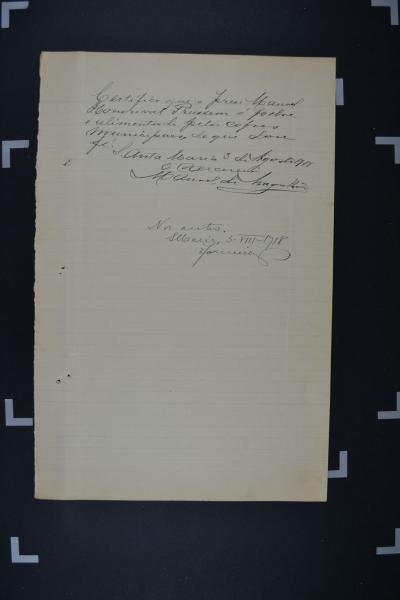 Certifico que o preso Manoel
Prudem é pobre
e alimentado pelos cofres
Municipaes, do que dou
fé. Santa Maria 3 de Agosto 1918
O Carcereiro
Manoel de
Nos autos.
SMaria, 5-VIII-918